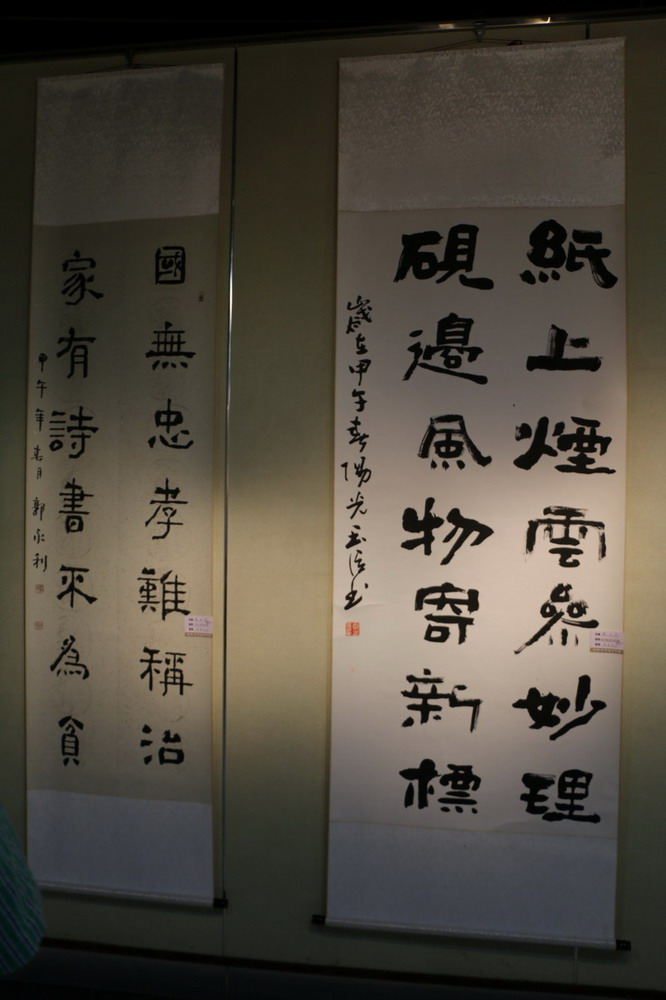 紙上煙雲參妙理
硯邊風物寄新標
歲在甲午春陽光玉书
國無忠孝難稱治
家有詩書未為貧
甲午年春月郭永利